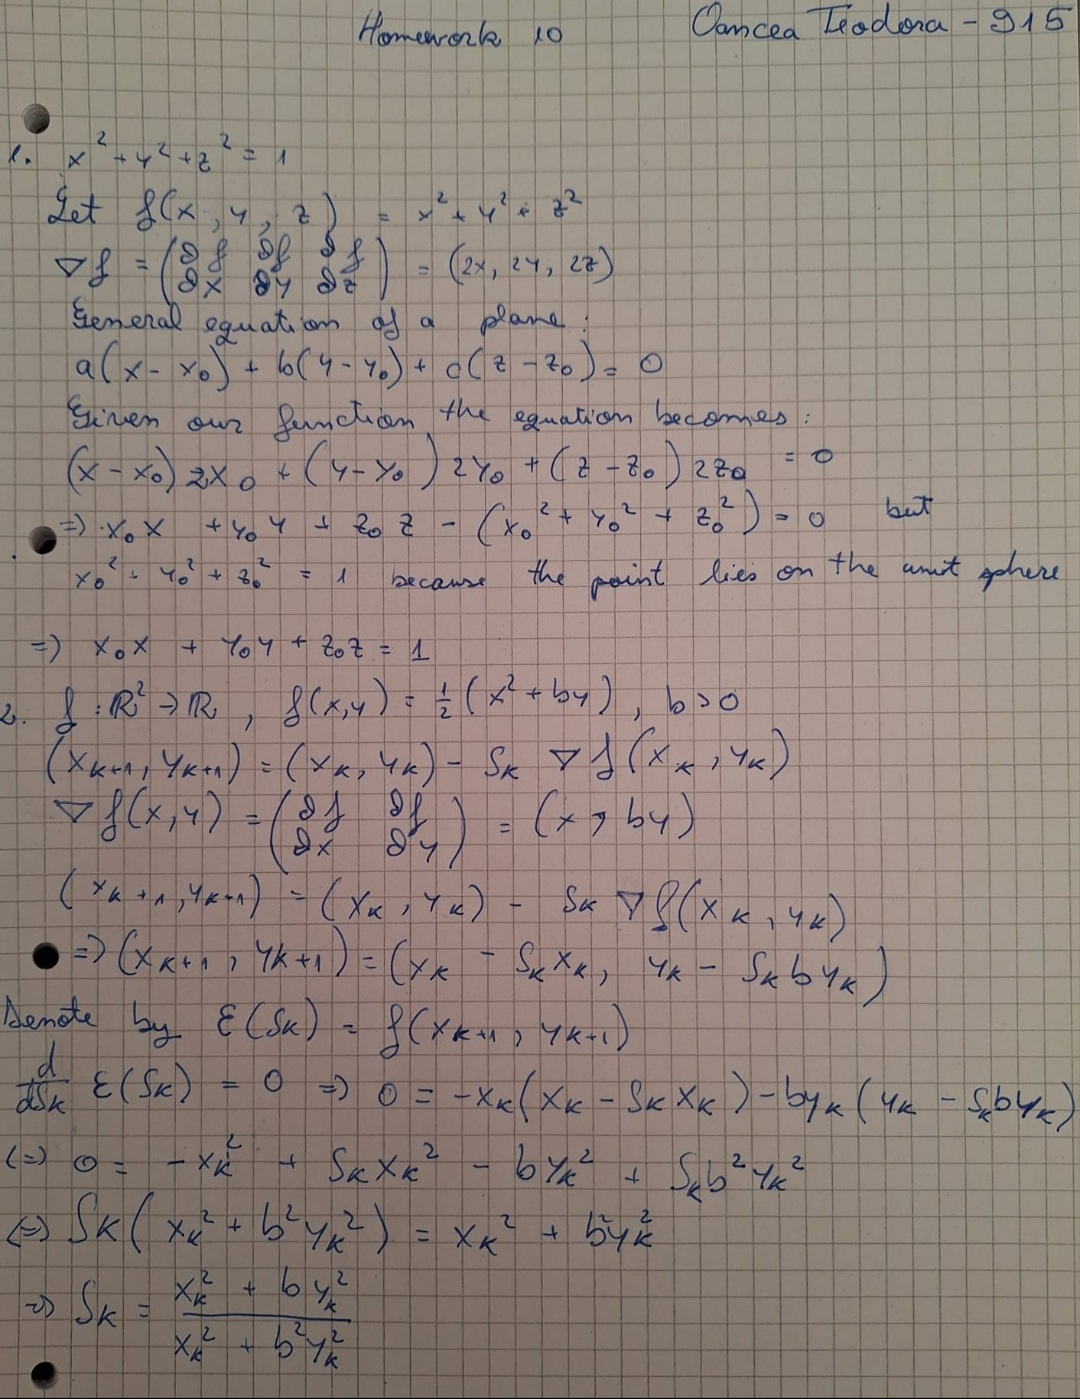 Homework 10 Oancea Teodora - 915
1. x² + y² + z² = 1
Let f(x, y, z) = x² + y² + z²
∇f = (∂f/∂x ∂f/∂y ∂f/∂z) = (2x, 2y, 2z)
General equation of a plane:
a(x - x₀) + b(y - y₀) + c(z - z₀) = 0
Given our function, the equation becomes:
(x - x₀) 2x₀ + (y - y₀) 2y₀ + (z - z₀) 2z₀ = 0
=> x₀x + y₀y + z₀z - (x₀² + y₀² + z₀²) = 0 but
x₀² + y₀² + z₀² = 1 because the point lies on the unit sphere
=> x₀x + y₀y + z₀z = 1
2. f: ℝ² → ℝ, f(x,y) = ½(x² + by), b > 0
(xₖ₊₁, yₖ₊₁) = (xₖ, yₖ) - Sₖ ∇f(xₖ, yₖ)
∇f(x,y) = (∂f/∂x ∂f/∂y) = (x, by)
(xₖ₊₁, yₖ₊₁) = (xₖ, yₖ) - Sₖ ∇f(xₖ, yₖ)
=> (xₖ₊₁, yₖ₊₁) = (xₖ - Sₖxₖ, yₖ - Sₖbyₖ)
Denote by ε(Sₖ) = f(xₖ₊₁, yₖ₊₁)
d/dSₖ ε(Sₖ) = 0 => 0 = -xₖ(xₖ - Sₖxₖ) - byₖ(yₖ - Sₖbyₖ)
(=) 0 = -xₖ² + Sₖxₖ² - byₖ² + Sₖb²yₖ²
(=) Sₖ(xₖ² + b²yₖ²) = xₖ² + b²yₖ²
=> Sₖ = (xₖ² + byₖ²)/(xₖ² + b²yₖ²)